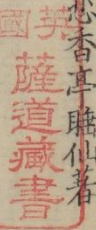 香亭睡仙著
英國
薩道藏書